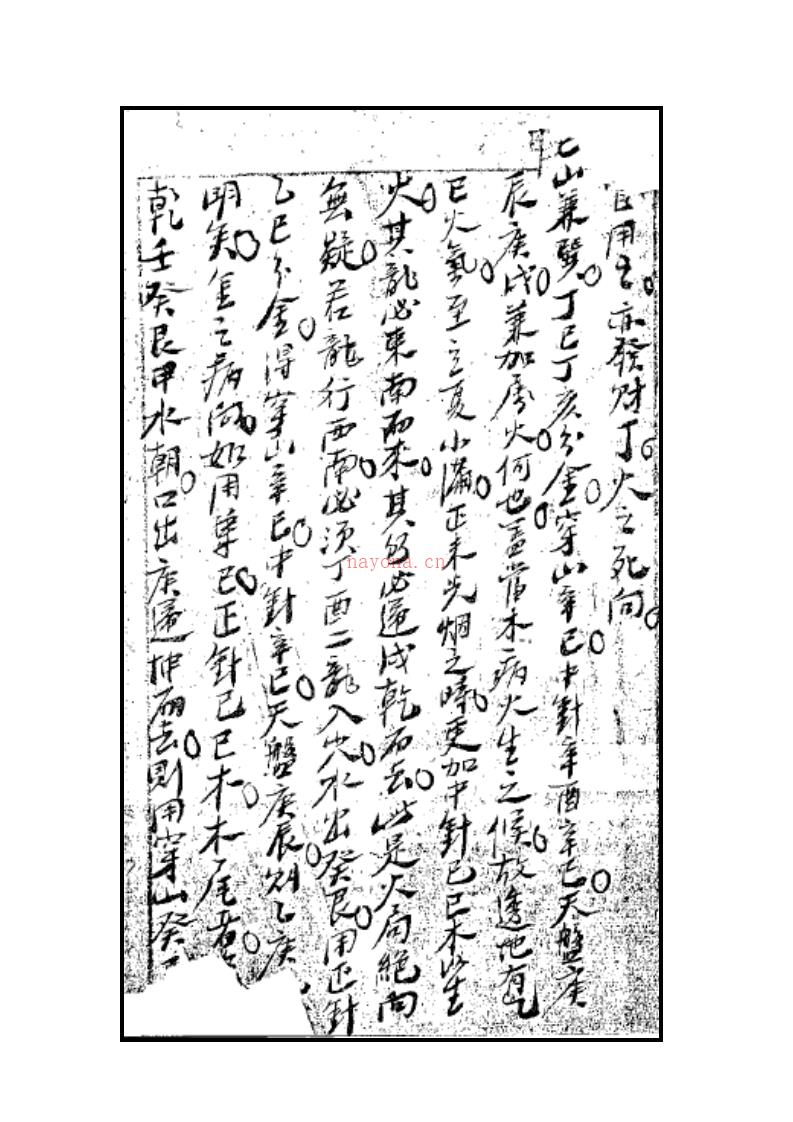 用之亦發財丁火之死向
山兼巽丁巳丁亥分金穿山辛巳中針辛酉辛巳天盤庚
辰庚戌兼加屬火何也蓋當木病火生之候故透地有
巳火氣至立夏小滿正未光烟之時更加中針己巳木以生
火其龍必東南而來其水必還戌乾而去此是火局絕向
無疑若龍行西南必須丁酉二龍入穴水出癸艮用正針
乙巳分金得穿山辛巳中針辛巳天盤庚辰則乙庚
明矣金之病尚如用單巳正針己巳木木尾
乾壬癸艮甲水朝口出庚還坤而去則用穿山癸
nayona.cn